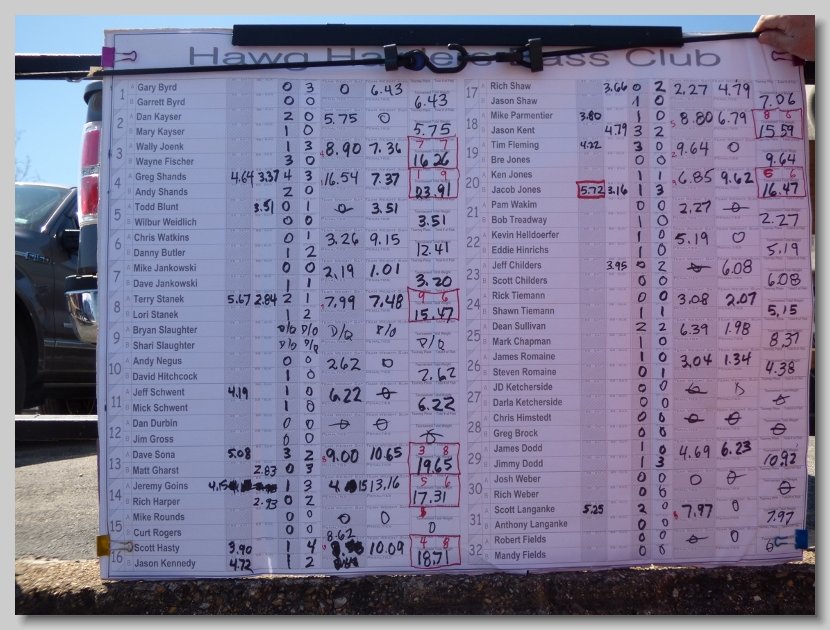 Hawg Haulers Bass Club
1 A Gary Byrd 0 3 0 6.43
B Garrett Byrd 0 0 6.43
2 A Dan Kayser 2 0 5.75 0
B Mary Kayser 1 0 5.75
3 A Wally Joenk 1 3 8.90 7.36 7 7
B Wayne Fischer 3 0 16.26
4 A Greg Shands 4.64 3.37 4 3 16.54 7.37 1 9
B Andy Shands 2 0 23.91
5 A Todd Blunt 3.51 0 1 0 3.51
B Wilbur Weidlich 0 0 3.51
6 A Chris Watkins 0 1 3.26 9.15
B Danny Butler 1 2 12.41
7 A Mike Jankowski 0 0 2.19 1.01
B Dave Jankowski 1 1 3.20
8 A Terry Stanek 5.67 2.84 2 1 7.99 7.48 9 6
B Lori Stanek 1 2 15.47
9 A Bryan Slaughter D/Q D/Q D/Q D/Q
B Shari Slaughter D/Q D/Q D/Q
10 A Andy Negus 0 0 2.62 0
B David Hitchcock 1 0 2.62
11 A Jeff Schwent 4.19 1 0 6.22 0
B Mick Schwent 1 0 6.22
12 A Dan Durbin 0 0 0 0
B Jim Gross 0 0 0
13 A Dave Sona 5.08 3 2 9.00 10.65 3 8
B Matt Gharst 2.83 0 3 19.65
14 A Jeremy Goins 4.15 1 3 4.15 13.16 5 6
B Rich Harper 2.93 0 2 17.31
15 A Mike Rounds 0 0 0 0
B Curt Rogers 0 0 0
16 A Scott Hasty 3.90 1 4 8.62 10.09 4 8
B Jason Kennedy 4.72 1 2 18.71
17 A Rich Shaw 3.66 0 2 2.27 4.79
B Jason Shaw 1 0 7.06
18 A Mike Parmentier 3.80 1 1 8.80 6.79 8 6
B Jason Kent 4.79 3 2 15.59
19 A Tim Fleming 4.22 3 0 9.64 0
B Bre Jones 0 0 9.64
20 A Ken Jones 1 1 6.85 9.62 6 6
B Jacob Jones 5.72 3.16 1 3 16.47
21 A Pam Wakim 0 0 2.27 0
B Bob Treadway 1 0 2.27
22 A Kevin Helldoerfer 1 0 5.19 0
B Eddie Hinrichs 1 0 5.19
23 A Jeff Childers 3.95 0 2 0 6.08
B Scott Childers 0 0 6.08
24 A Rick Tiemann 0 0 3.08 2.07
B Shawn Tiemann 1 1 5.15
25 A Dean Sullivan 2 2 6.39 1.98
B Mark Chapman 1 0 8.37
26 A James Romaine 1 0 3.04 1.34
B Steven Romaine 0 1 4.38
27 A JD Ketcherside 0 0 0
B Darla Ketcherside 0 0 0
28 A Chris Himstedt 0 0 0 0
B Greg Brock 0 0 0
29 A James Dodd 1 0 4.69 6.23
B Jimmy Dodd 1 3 10.92
30 A Josh Weber 0 0 0 0
B Rich Weber 0 0 0
31 A Scott Langanke 5.25 2 0 7.97 0
B Anthony Langanke 0 0 7.97
32 A Robert Fields 0 0 0 0
B Mandy Fields 0 0 0